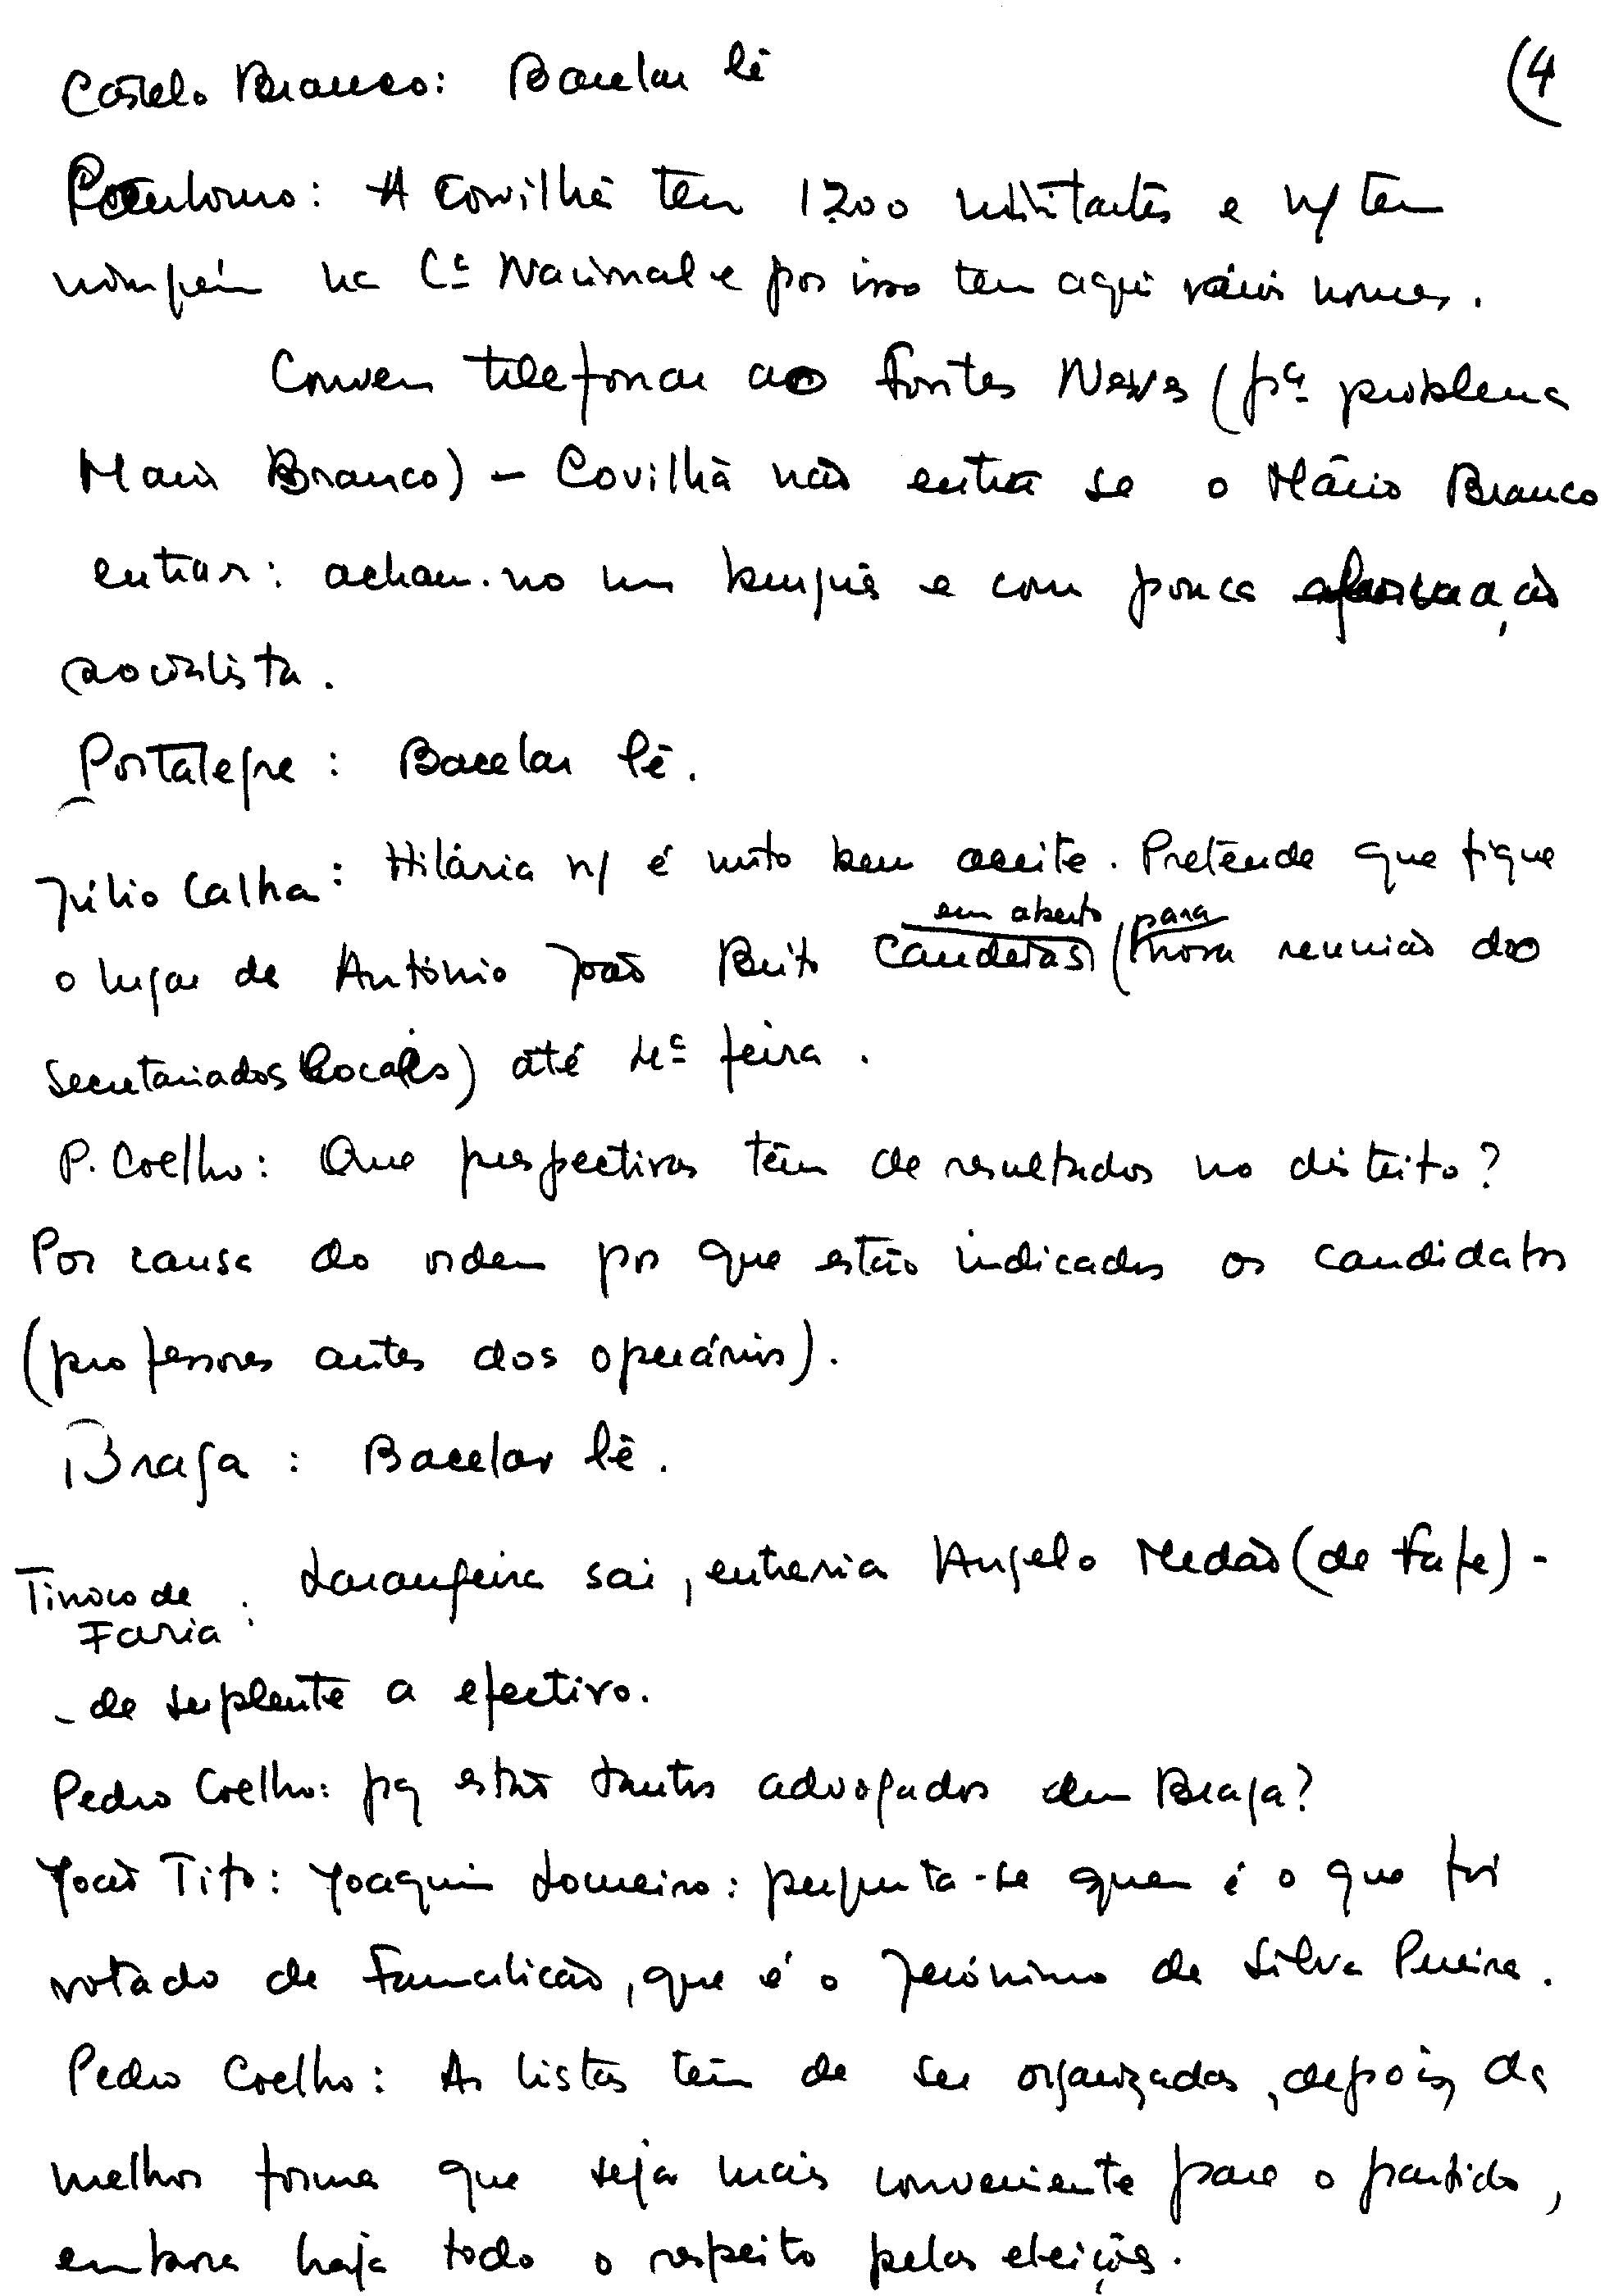 Castelo Branco: Bacelar lê (4
: A Covilhã tem 1200 militantes e n/ tem
ninguém na Cª Nacional e por isso tem aqui vários nomes.
Convem telefonar ao Fontes Neves (pª problema
Mario Branco) - Covilhã não entra se o Mário Branco
entrar: acham-no um burguês e com pouca formação
socialista.
Portalegre: Bacelar lê.
Júlio Calha: Hilária n/ é muito bem aceite. Pretende que fique
em aberto para
o lugar de António João Brito Candeias (nova reunião do
Secretariados Locais) até 4ª feira.
P. Coelho: Que perspectivas têm de resultados no distrito?
Por causa do ordem por que estão indicados os candidatos
(professores antes dos operários).
Braga: Bacelar lê.
Tinoco de Faria: Laranjeira sai, entraria Angelo Medão (de Fafe) -
- de suplente a efectivo.
Pedro Coelho: pq estão tantos advogados em Braga?
João Tito: Joaquim Loureiro: pergunta-se quem é o que foi
votado de Famalicão, que é o Jerónimo da Silva Pereira.
Pedro Coelho: As listas têm de ser organizadas, depois, da
melhor forma que seja mais conveniente para o partido,
embora haja todo o respeito pelas eleições.